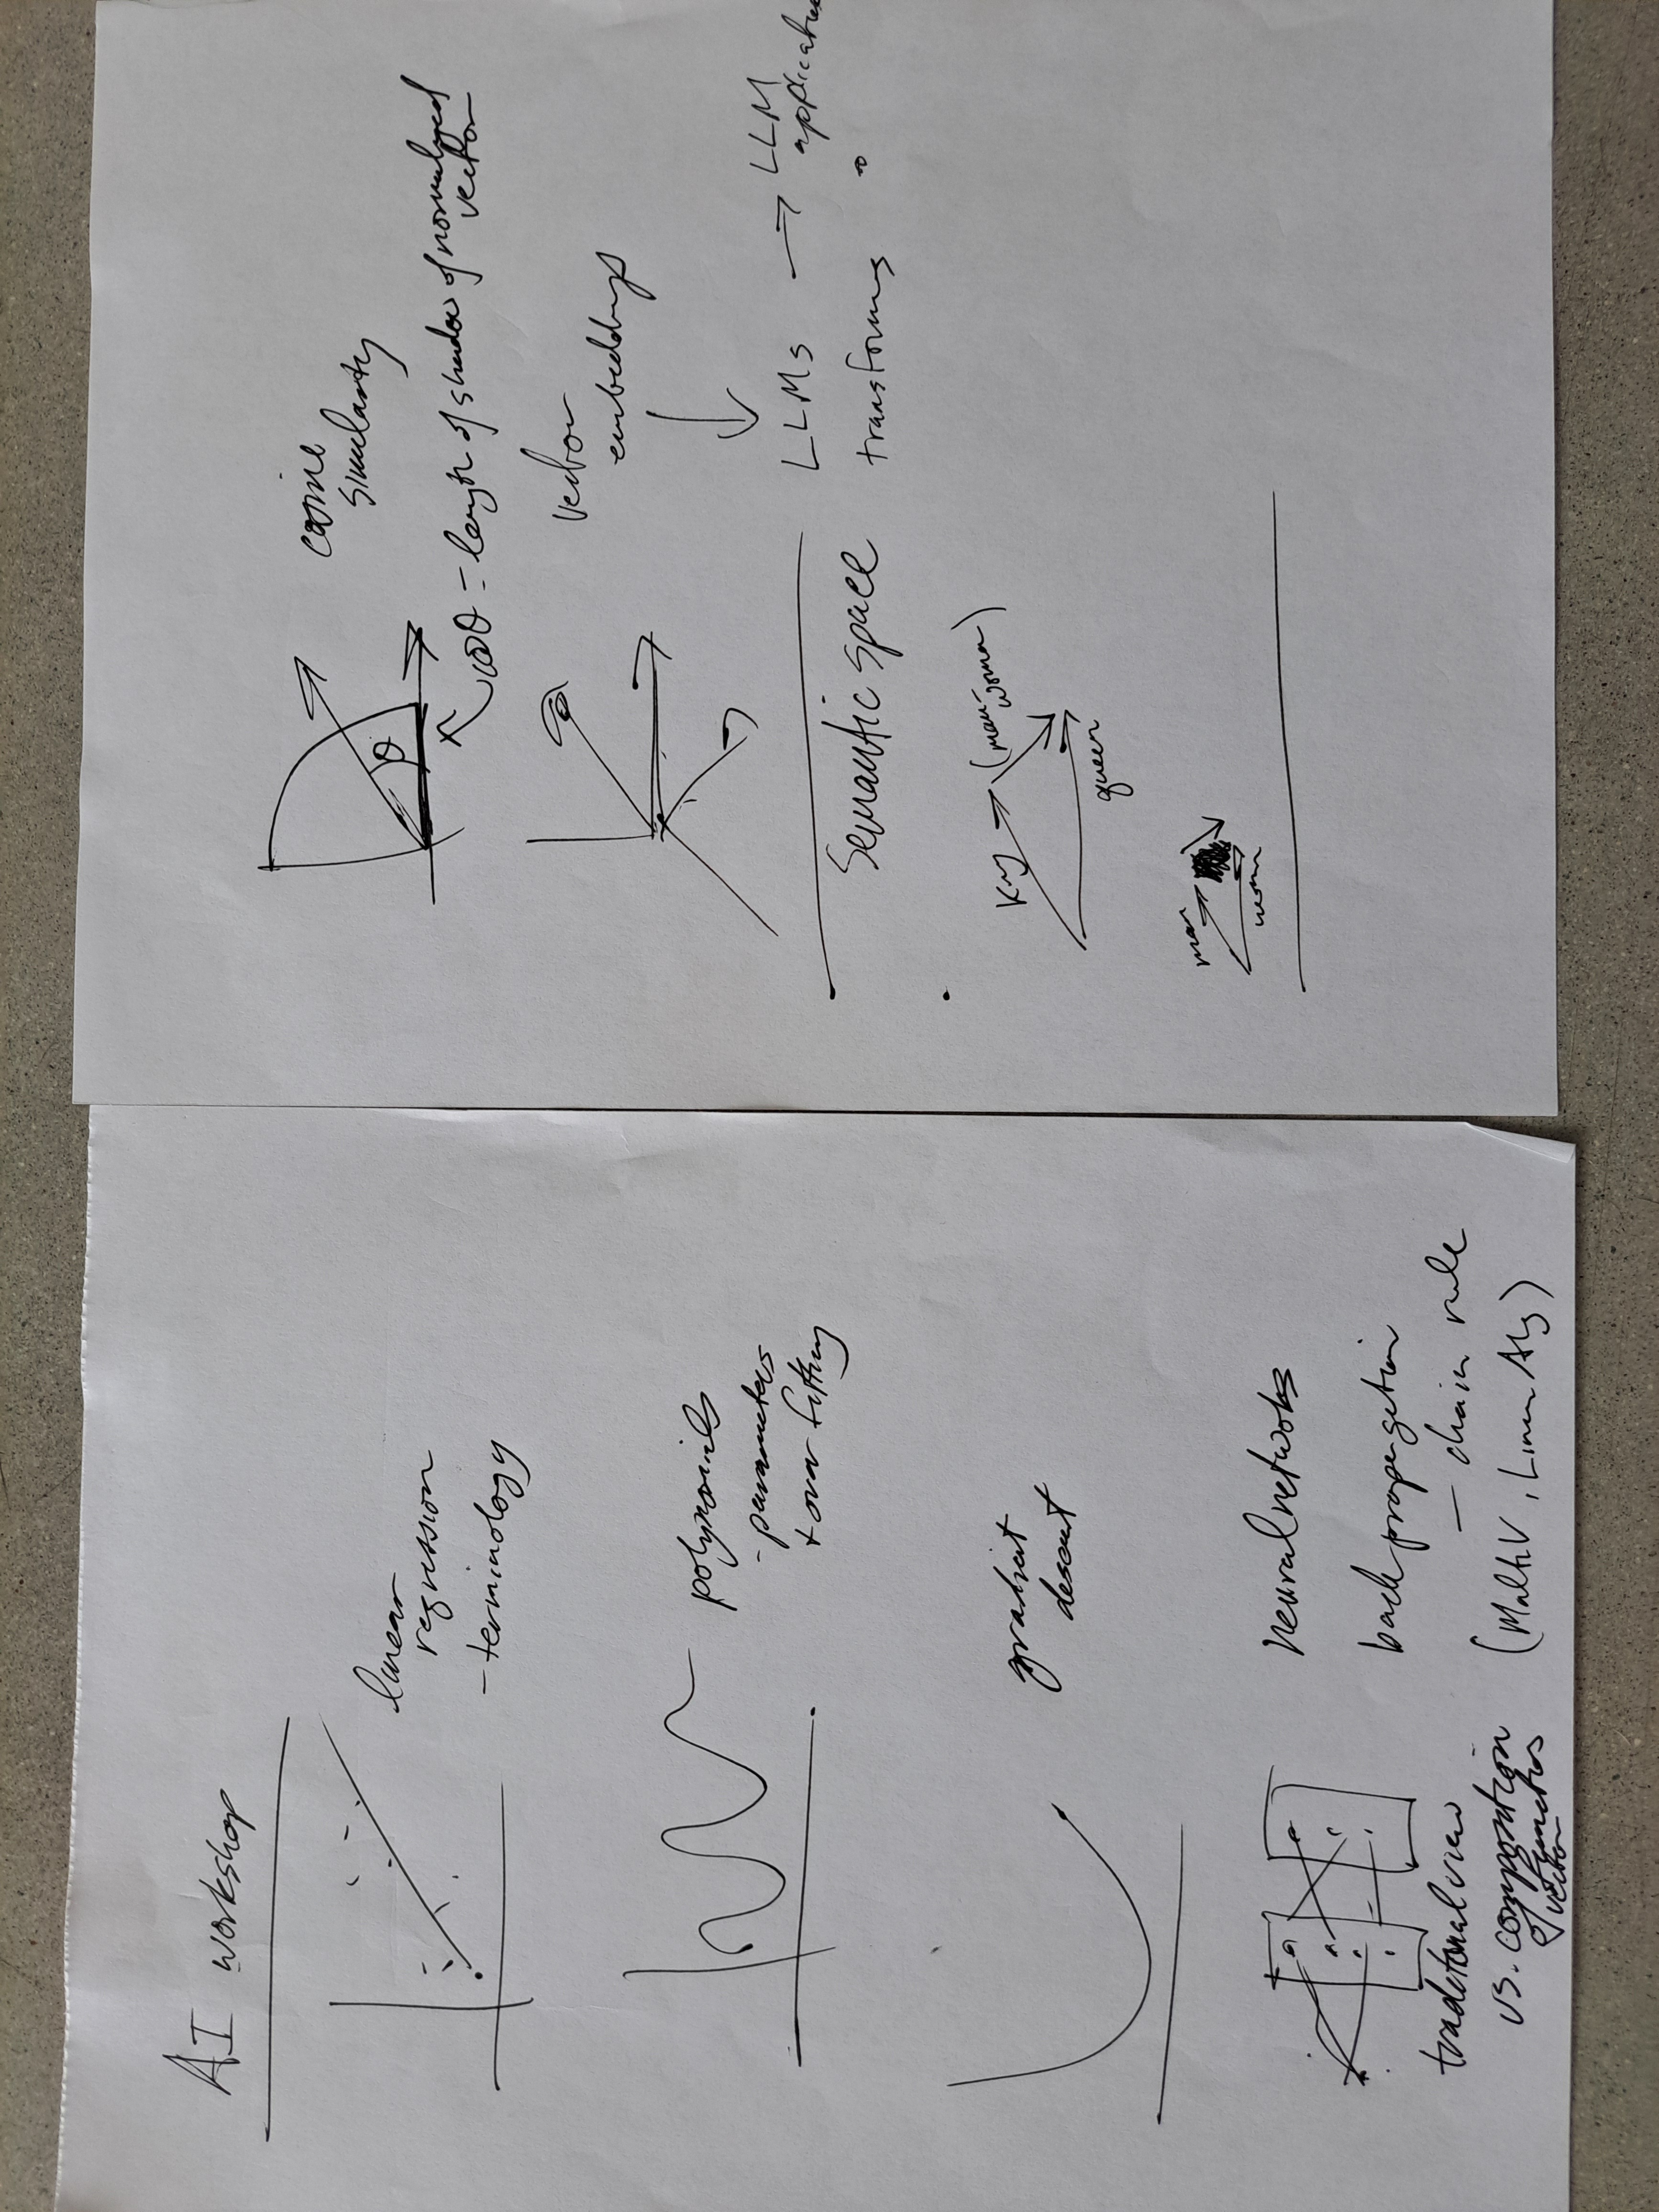 AI workshop
linear
regression
- terminology
polynomials
- parameters
+ over fitting
gradient
descent
neural networks
back propagation
- chain rule
(MultiV, Linear Alg)
traditional view
vs. composition
of functions
vector
cosine
similarity
θ
cosθ = length of shadow of normalized
vector
vector
embeddings
LLMs → LLM
Semantic space
king
(man-
woman)
queen
man
woman